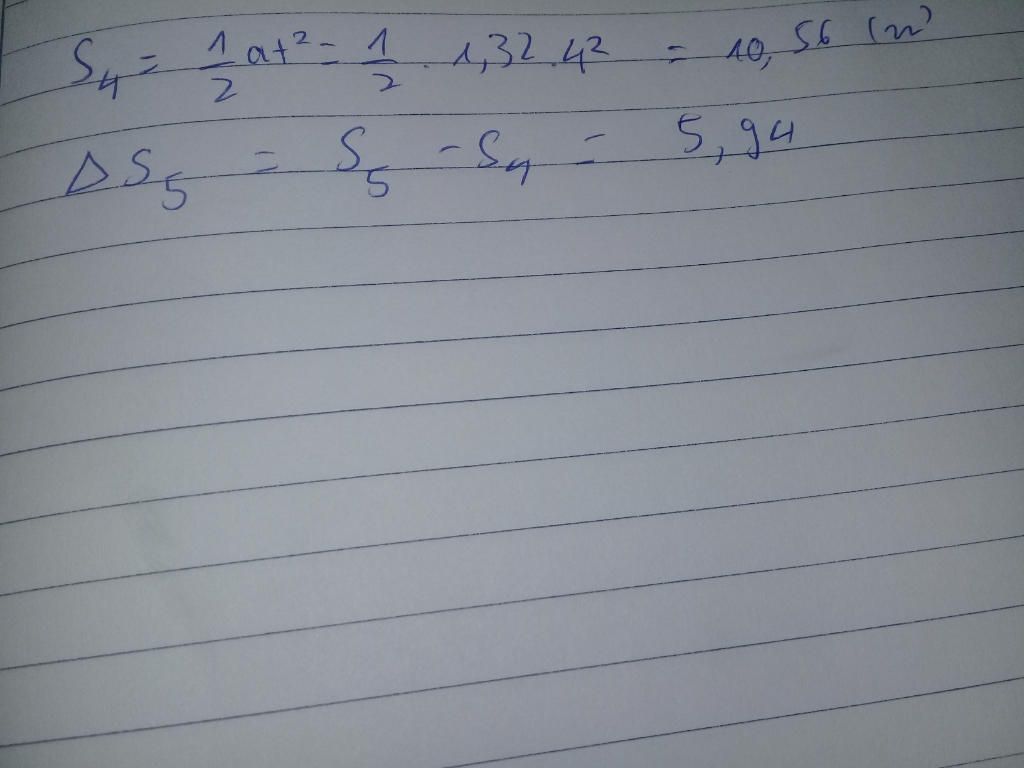 S₄ = 1/2 at² = 1/2 . 1,32 . 4² = 10,56 (m)
ΔS₅ = S₅ - S₄ = 5,94